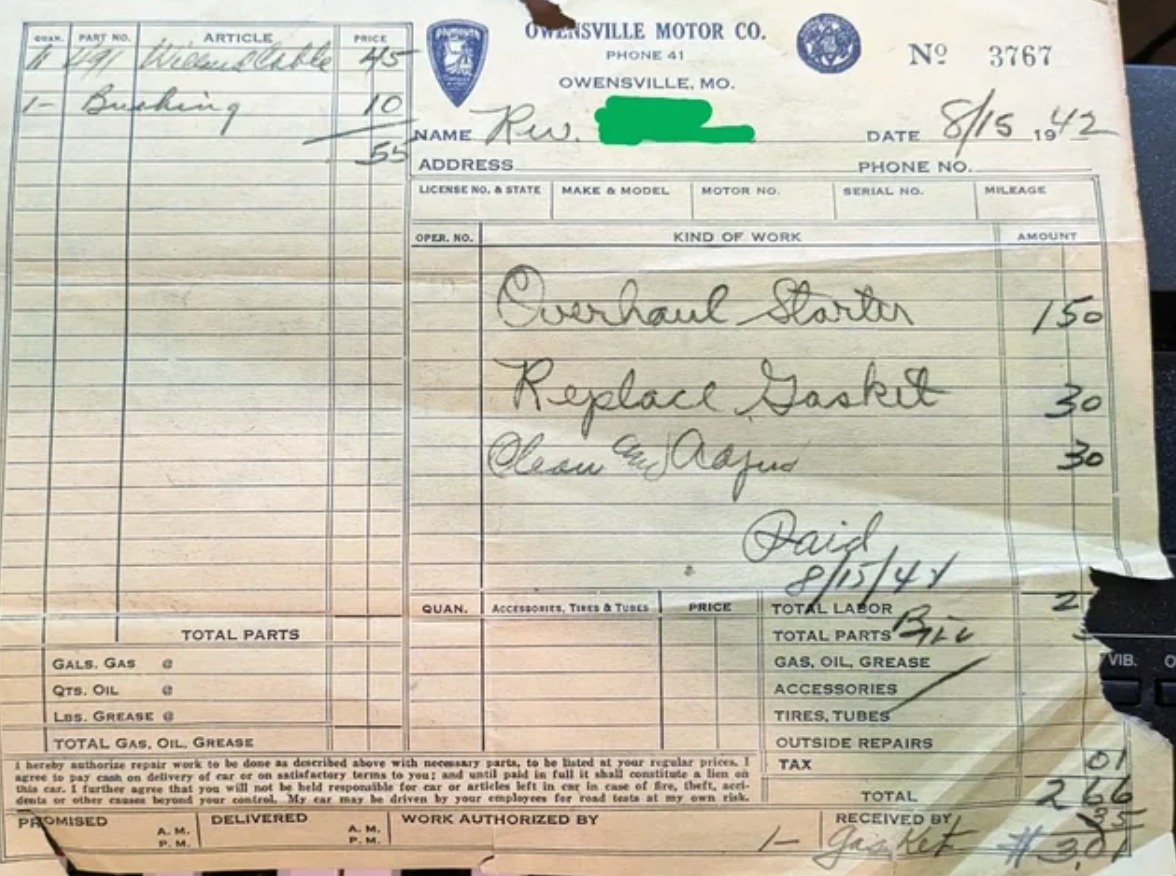 QUAN. PART NO. ARTICLE PRICE
491 Cable 45
1- Bushing 10
55
TOTAL PARTS
GALS. GAS @
QTS. OIL @
LBS. GREASE @
TOTAL GAS, OIL, GREASE
PLYMOUTH
OWENSVILLE MOTOR CO.
PHONE 41
OWENSVILLE, MO.
Nº 3767
NAME Rev. DATE 8/15 1942
ADDRESS PHONE NO.
LICENSE NO. & STATE MAKE & MODEL MOTOR NO. SERIAL NO. MILEAGE
OPER. NO. KIND OF WORK AMOUNT
Overhaul Starter 150
Replace Gasket 30
Clean and 30
Paid
8/15/42
QUAN. ACCESSORIES, TIRES & TUBES PRICE
TOTAL LABOR 2
TOTAL PARTS
GAS, OIL, GREASE
ACCESSORIES
TIRES, TUBES
OUTSIDE REPAIRS
TAX 01
TOTAL 266
35
I hereby authorize repair work to be done as described above with necessary parts, to be listed at your regular prices. I
agree to pay cash on delivery of car or on satisfactory terms to you; and until paid in full it shall constitute a lien on
this car. I further agree that you will not be held responsible for car or articles left in car in case of fire, theft, acci-
dents or other causes beyond your control. My car may be driven by your employees for road tests at my own risk.
PROMISED A. M. P. M. DELIVERED A. M. P. M. WORK AUTHORIZED BY RECEIVED BY
1- Gasket # 3.01
VIB.